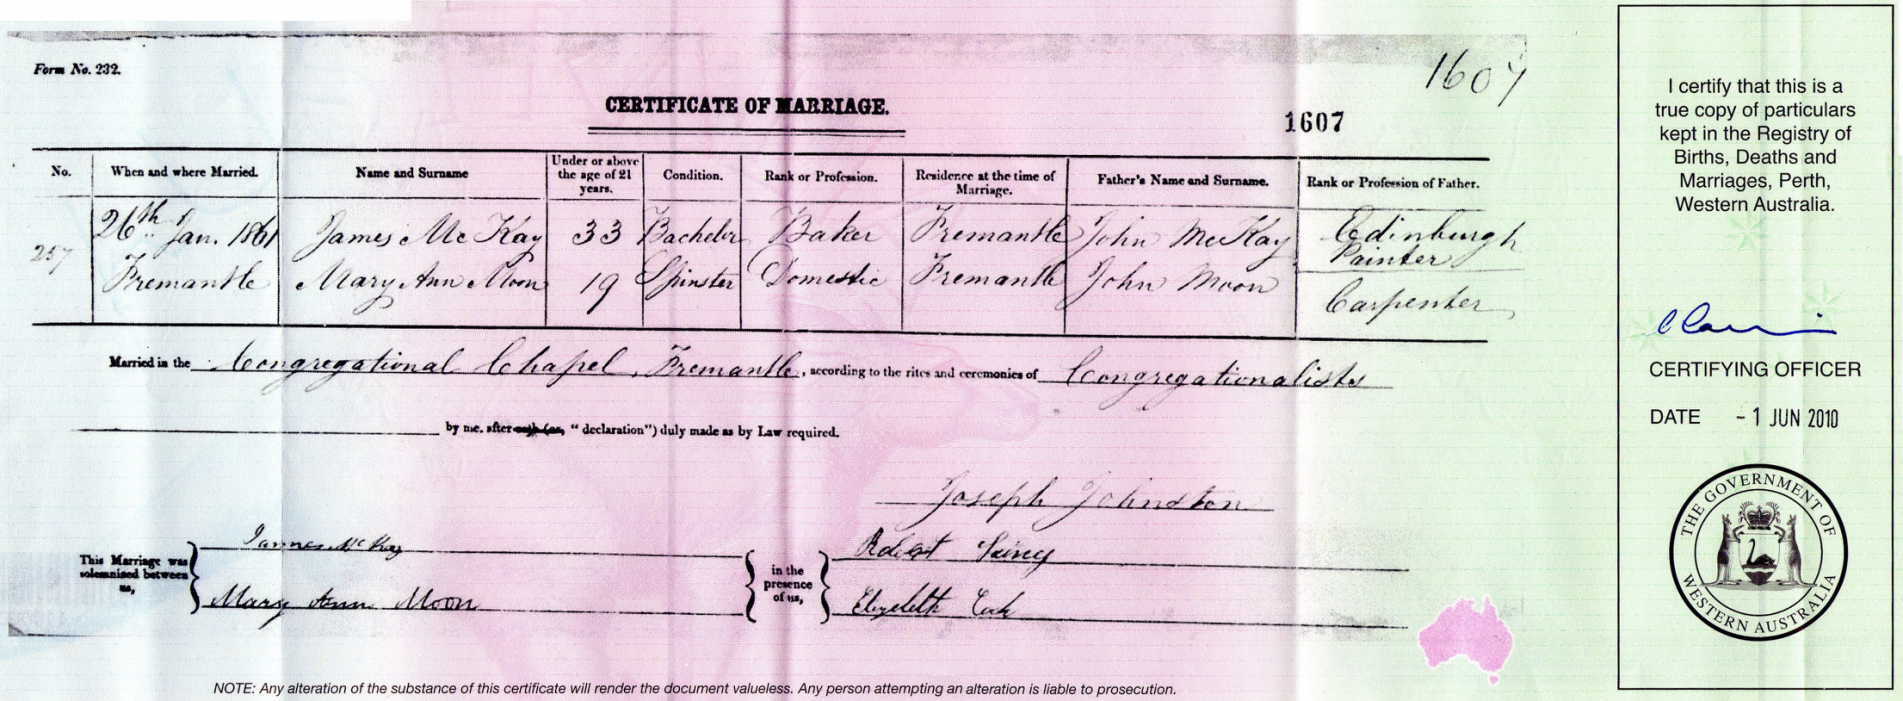 Form No. 232.
1607
CERTIFICATE OF MARRIAGE.
1607
No. When and where Married. Name and Surname Under or above the age of 21 years. Condition. Rank or Profession. Residence at the time of Marriage. Father's Name and Surname. Rank or Profession of Father.
257 26th Jan. 1861 James McKay 33 Bachelor Baker Fremantle John McKay Edinburgh Painter
Fremantle Mary Ann Moon 19 Spinster Domestic Fremantle John Moon Carpenter
Married in the Congregational Chapel, Fremantle, according to the rites and ceremonies of Congregationalists
by me, after oath (or, "declaration") duly made as by Law required.
Joseph Johnston
This Marriage was solemnised between us, James McKay in the presence of us, Robert
Mary Ann Moon Elizabeth
NOTE: Any alteration of the substance of this certificate will render the document valueless. Any person attempting an alteration is liable to prosecution.
I certify that this is a
true copy of particulars
kept in the Registry of
Births, Deaths and
Marriages, Perth,
Western Australia.
CERTIFYING OFFICER
DATE - 1 JUN 2010
THE GOVERNMENT OF
WESTERN AUSTRALIA